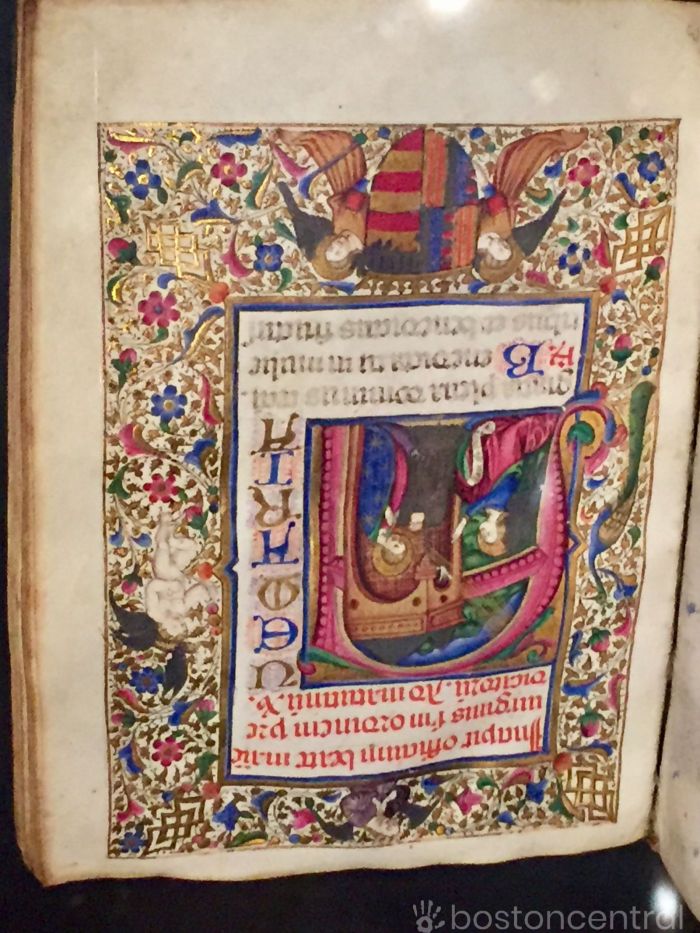 Incipit officium beate marie
uirginis s'm ordinem pre
dicatorū. Ad matutinū. V.
AUE MARIA
gratia plena dominus tecū.
R. Benedicta tu in mulie
ribus et benedictus fructus
bostoncentral